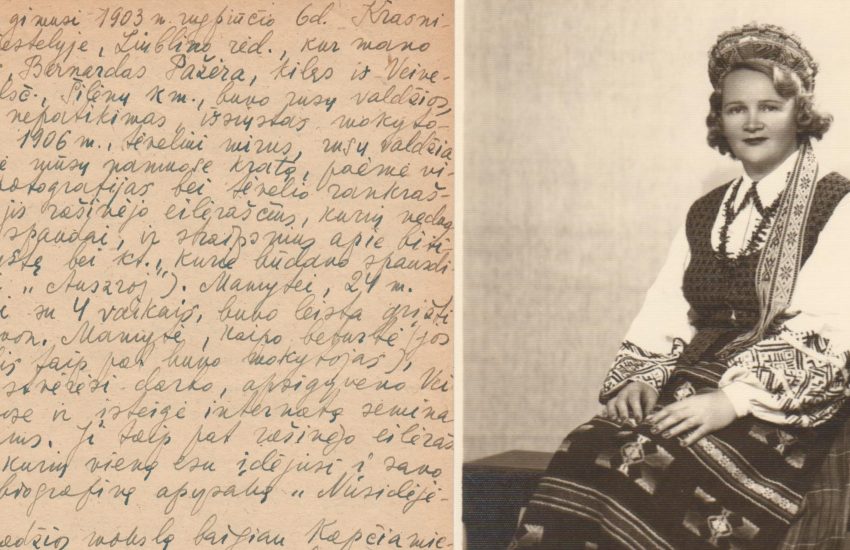 gimusi 1903 m. rugpiučio 6 d. Krasni-
estelyje, Liublino rėd., kur mano
, Bernardas Pažėra, kilęs iš Veive-
lsč., Šilėnų km., buvo rusų valdžios,
nepatikimas, išsiųstas mokyto-
1906 m., tėveliui mirus, rusų valdžia
ė mūsų namuose kratą, paėmė vi-
otografijas bei tėvelio rankraš-
jis rašinėjo eilėraščius, kurių nedaug
spaudai, ir straipsnius apie biti-
ystę bei kt., kurie būdavo spausdi-
i „Auszroj"). Mamytei, 24 m.
i su 4 vaikais, buvo leista grįžti
von. Mamytė, kaipo beturtė (jos
is taip pat buvo mokytojas),
tvėrėsi darbo, apsigyveno Vei
ose ir įsteigė internatą semina
ams. Ji taip pat rašinėjo eilėraš
kurių vieną esu įdėjusi į savo
biografinę apysaką „Nusidėjė-
adžios mokslą baigiau Kapčiamie-